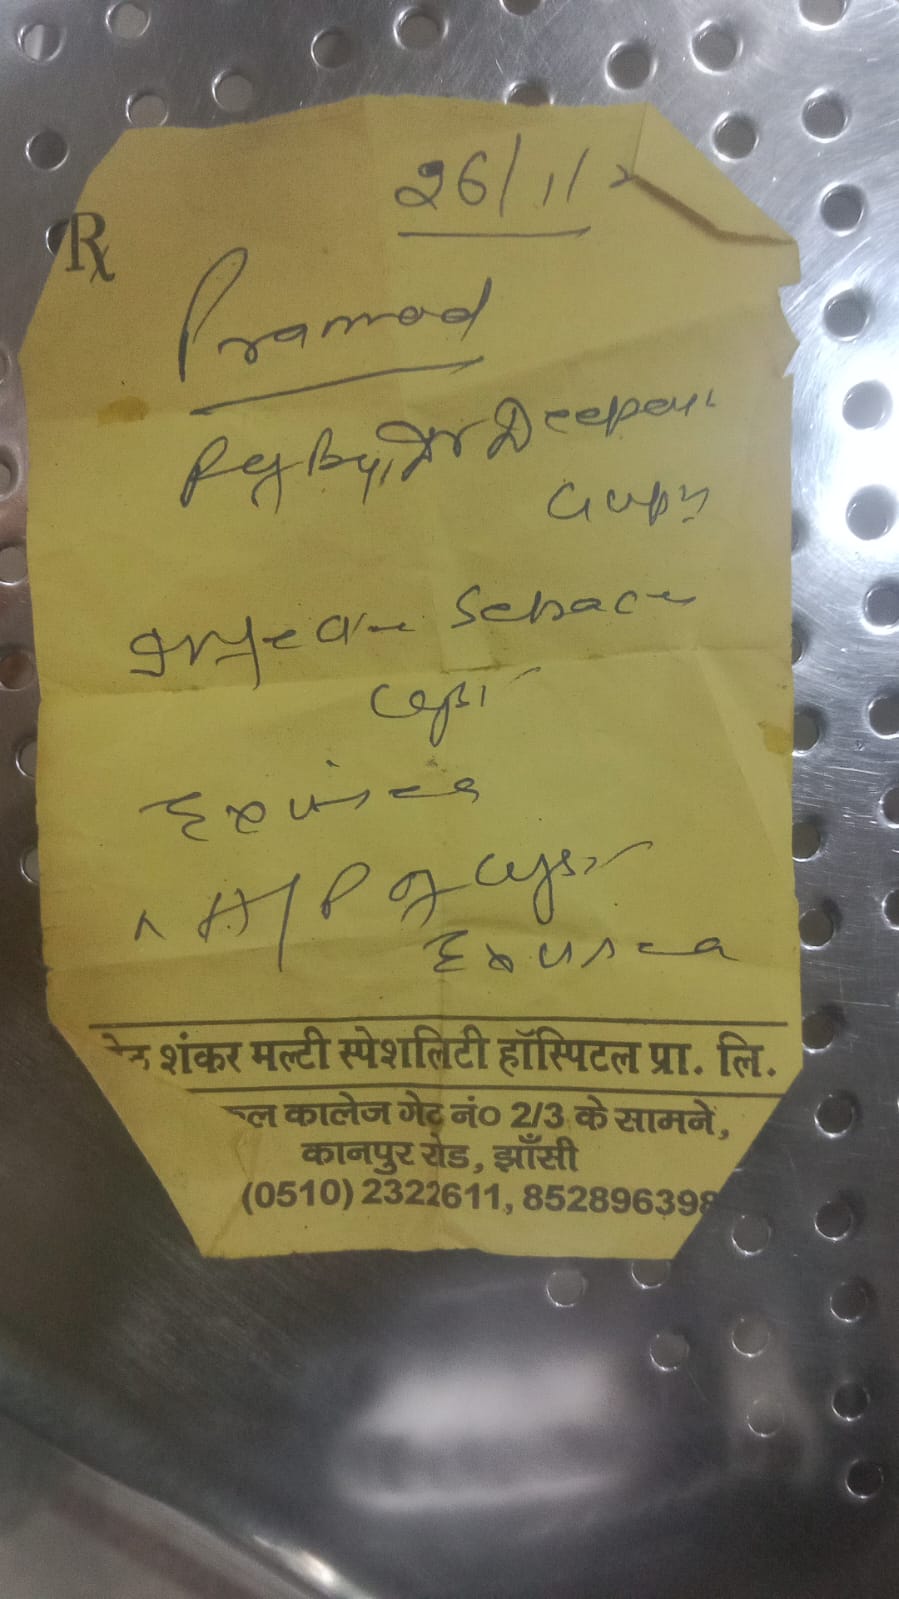 26/11/2
Rx
Pramod
Ref By, Dr Deepak
Gupta
Infected Sebaceous
Cyst
Excised
H/P of Cyst
Excised
शंकर मल्टी स्पेशलिटी हॉस्पिटल प्रा. लि.
कालेज गेट नं० 2/3 के सामने,
कानपुर रोड, झाँसी
(0510) 2322611, 852896398